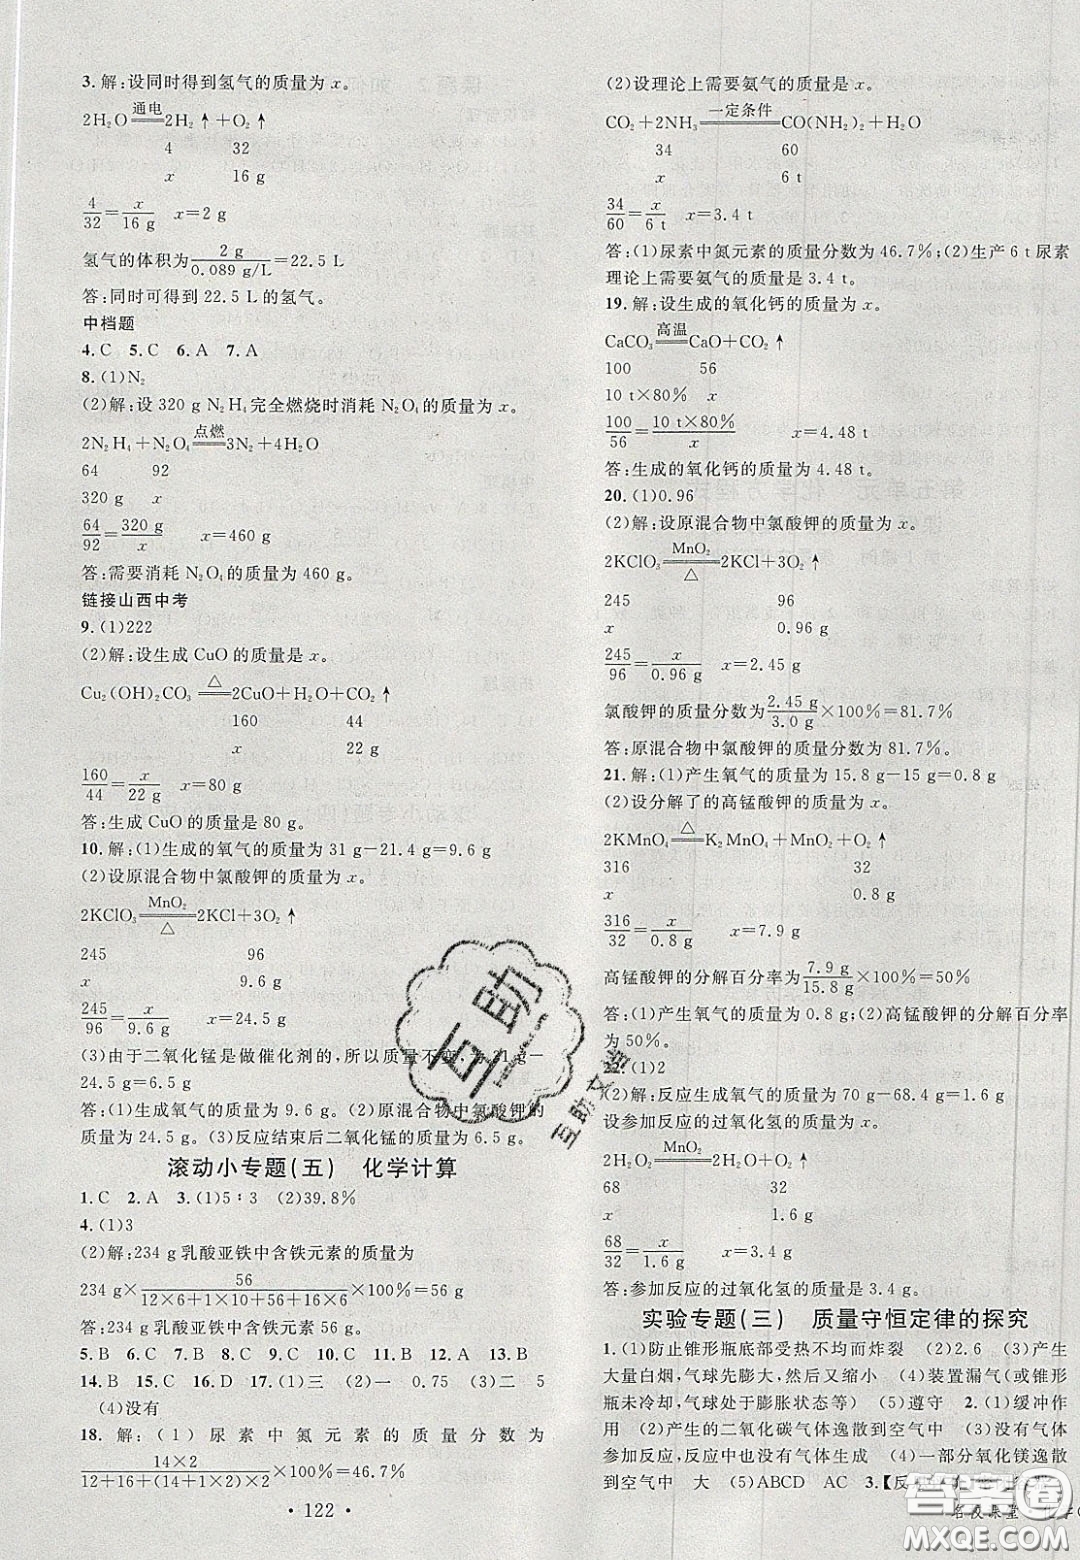 3. 解:设同时得到氢气的质量为 x。
2H₂O =通电= 2H₂↑+O₂↑
4 32
x 16 g
4/32 = x/16 g x=2 g
氢气的体积为 2 g/0.089 g/L = 22.5 L
答:同时可得到 22.5 L的氢气。
中档题
4. C 5. C 6. A 7. A
8. (1)N₂
(2)解:设 320 g N₂H₄完全燃烧时消耗 N₂O₄的质量为 x。
2N₂H₄+N₂O₄ =点燃= 3N₂+4H₂O
64 92
320 g x
64/92 = 320 g/x x=460 g
答:需要消耗 N₂O₄的质量为 460 g。
链接山西中考
9. (1)222
(2)解:设生成 CuO 的质量是 x。
Cu₂(OH)₂CO₃ =△= 2CuO+H₂O+CO₂↑
160 44
x 22 g
160/44 = x/22 g x=80 g
答:生成 CuO 的质量是 80 g。
10. 解:(1)生成的氧气的质量为 31 g−21.4 g=9.6 g
(2)设原混合物中氯酸钾的质量为 x。
2KClO₃ =MnO₂/△= 2KCl+3O₂↑
245 96
x 9.6 g
245/96 = x/9.6 g x=24.5 g
(3)由于二氧化锰是做催化剂的,所以质量不变,为31 g−
24.5 g=6.5 g
答:(1)生成氧气的质量为 9.6 g。(2)原混合物中氯酸钾的
质量为 24.5 g。(3)反应结束后二氧化锰的质量为 6.5 g。
滚动小专题(五) 化学计算
1. C 2. A 3. (1)5∶3 (2)39.8%
4. (1)3
(2)解:234 g 乳酸亚铁中含铁元素的质量为
234 g× 56/(12×6+1×10+56+16×6) ×100%=56 g
答:234 g 乳酸亚铁中含铁元素 56 g。
5. B 6. B 7. B 8. C 9. C 10. C 11. C 12. B 13. C
14. B 15. B 16. D 17. (1)三 (2)一 0.75 (3)二 5
(4)没有
18. 解:(1)尿素中氮元素的质量分数为
14×2/(12+16+(14+1×2)×2) ×100%≈46.7%
(2)设理论上需要氨气的质量为 x。
CO₂+2NH₃ =一定条件= CO(NH₂)₂+H₂O
34 60
x 6 t
34/60 = x/6 t x=3.4 t
答:(1)尿素中氮元素的质量分数为 46.7%;(2)生产 6 t 尿素
理论上需要氨气的质量是 3.4 t。
19. 解:设生成的氧化钙的质量为 x。
CaCO₃ =高温= CaO+CO₂↑
100 56
10 t×80% x
100/56 = 10 t×80%/x x=4.48 t
答:生成的氧化钙的质量为 4.48 t。
20. (1)0.96
(2)解:设原混合物中氯酸钾的质量为 x。
2KClO₃ =MnO₂/△= 2KCl+3O₂↑
245 96
x 0.96 g
245/96 = x/0.96 g x=2.45 g
氯酸钾的质量分数为 2.45 g/3.0 g ×100%=81.7%
答:原混合物中氯酸钾的质量分数为 81.7%。
21. 解:(1)产生氧气的质量为 15.8 g−15 g=0.8 g
(2)设分解了的高锰酸钾的质量为 x。
2KMnO₄ =△= K₂MnO₄+MnO₂+O₂↑
316 32
x 0.8 g
316/32 = x/0.8 g x=7.9 g
高锰酸钾的分解百分率为 7.9 g/15.8 g ×100%=50%
答:(1)产生氧气的质量为 0.8 g;(2)高锰酸钾的分解百分率
为 50%。
22. (1)2
(2)解:反应生成氧气的质量为 70 g−68.4 g=1.6 g
设参加反应的过氧化氢的质量为 x。
2H₂O₂ =MnO₂= 2H₂O+O₂↑
68 32
x 1.6 g
68/32 = x/1.6 g x=3.4 g
答:参加反应的过氧化氢的质量是 3.4 g。
实验专题(三) 质量守恒定律的探究
1. (1)防止锥形瓶底部受热不均而炸裂 (2)2.6 (3)产生
大量白烟,气球先膨大,然后又缩小 (4)装置漏气(或锥形
瓶未冷却,气球处于膨胀状态等) (5)遵守 2. (1)缓冲作
用 (2)产生的二氧化碳气体逸散到空气中 (3)没有气体
参加反应,反应中也没有气体生成 (4)一部分氧化镁逸散
到空气中 大 (5)ABCD AC 3.【反
· 122 ·
名校课堂 化学
互助
互助文档
答案圈
MXQE.COM